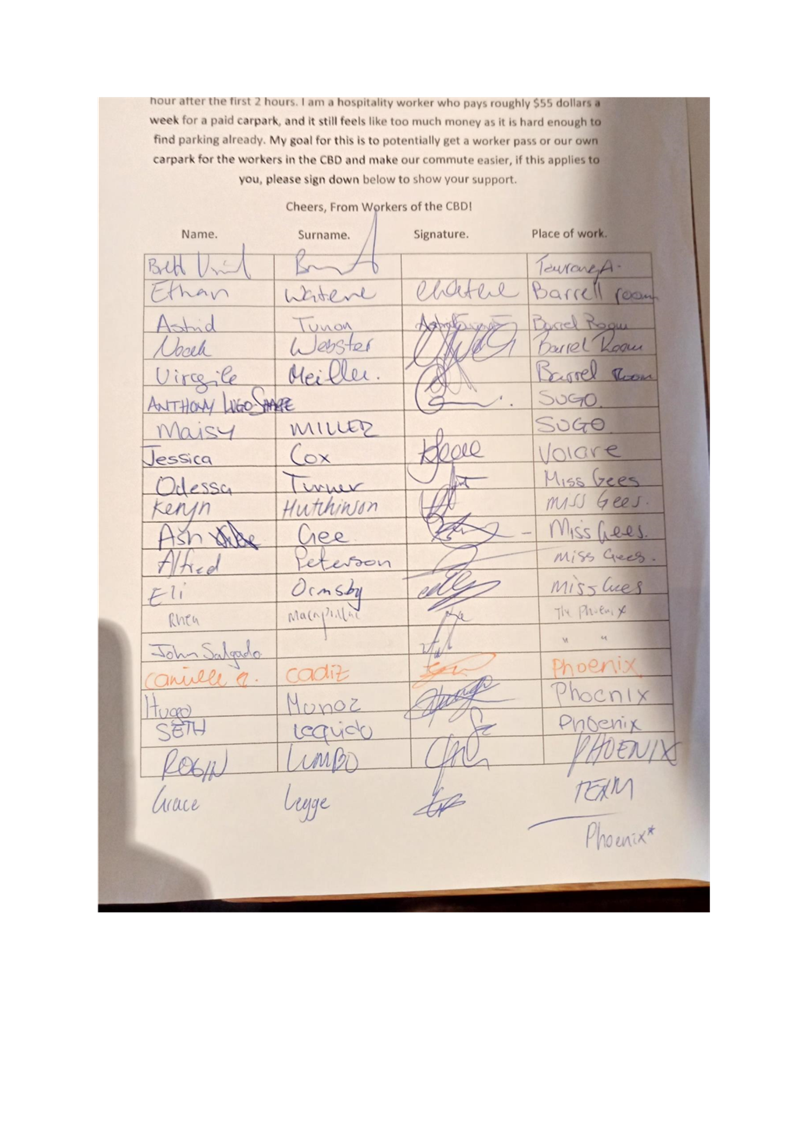 hour after the first 2 hours. I am a hospitality worker who pays roughly $55 dollars a
week for a paid carpark, and it still feels like too much money as it is hard enough to
find parking already. My goal for this is to potentially get a worker pass or our own
carpark for the workers in the CBD and make our commute easier, if this applies to
you, please sign down below to show your support.
Cheers, From Workers of the CBD!
Name. Surname. Signature. Place of work.
Brett
Ethan Watene Barrell room
Astrid Tunon Barrel Room
Noah Webster Barrel Room
Virgile Barrel Room
ANTHONY SUGO
Maisy MILLER SUGO
Jessica Cox Volare
Odessa Turner Miss Gees
Keryn Hutchinson Miss Gees.
Ash Gee Miss Gees.
Alfred Peterson Miss Gees.
Eli Ormsby Miss Gees
The Phoenix
John Salgado " "
Camille Q. Cadiz Phoenix
Hugo Munoz Phoenix
SETH Lequido Phoenix
ROBIN LIMBO PHOENIX
Grace Legge TEAM
Phoenix*